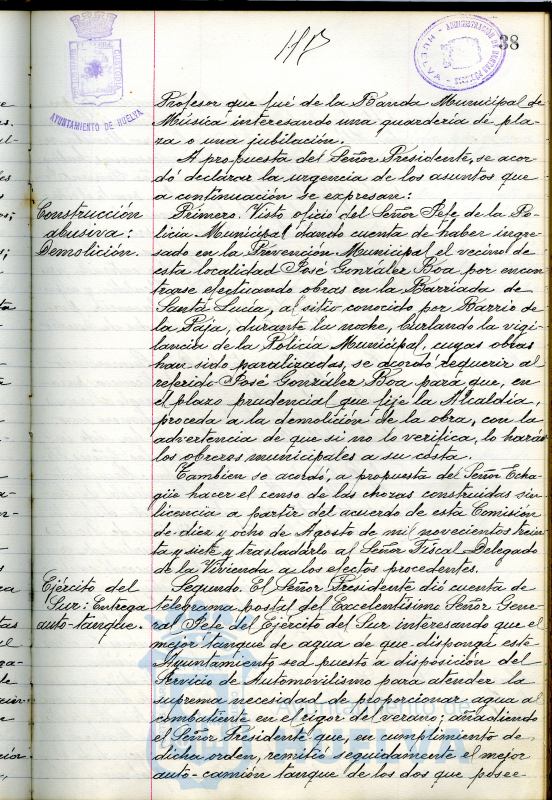 38
AYUNTAMIENTO DE HUELVA
Profesor que fué de la Banda Municipal de
Música interesando una guardería de pla-
za o una jubilación.
A propuesta del Señor Presidente, se acor-
dó declarar la urgencia de los asuntos que
a continuación se expresan:
Construcción
abusiva:
Demolición.
Primero. Visto oficio del Señor Jefe de la Po-
licía Municipal dando cuenta de haber ingre-
sado en la Prevención Municipal el vecino de
esta localidad José González Boa por encon
trarse efectuando obras en la Barriada de
Santa Lucía, al sitio conocido por Barrio de
la Paja, durante la noche, burlando la vigi-
lancia de la Policía Municipal, cuyas obras
han sido paralizadas, se acordó requerir al
referido José González Boa para que, en
el plazo prudencial que fije la Alcaldía,
proceda a la demolición de la obra, con la
advertencia de que si no lo verifica, lo harán
los obreros municipales a su costa.
Tambien se acordó, a propuesta del Señor Echa-
güe hacer el censo de las chozas construidas sin
licencia a partir del acuerdo de esta Comisión
de diez y ocho de Agosto de mil novecientos trein
ta y siete y trasladarlo al Señor Fiscal Delegado
de la Vivienda a los efectos procedentes.
Ejército del
Sur: Entrega
auto-tanque.
Segundo. El Señor Presidente dió cuenta de
telegrama postal del Excelentísimo Señor Gene-
ral Jefe del Ejército del Sur interesando que el
mejor tanque de agua de que disponga este
Ayuntamiento sea puesto a disposición del
Servicio de Automovilismo para atender la
suprema necesidad de proporcionar agua al
combatiente en el rigor del verano; añadiendo
el Señor Presidente que, en cumplimiento de
dicha orden, remitió seguidamente el mejor
auto-camión tanque de los dos que posee
Ayuntamiento de
HUELVA